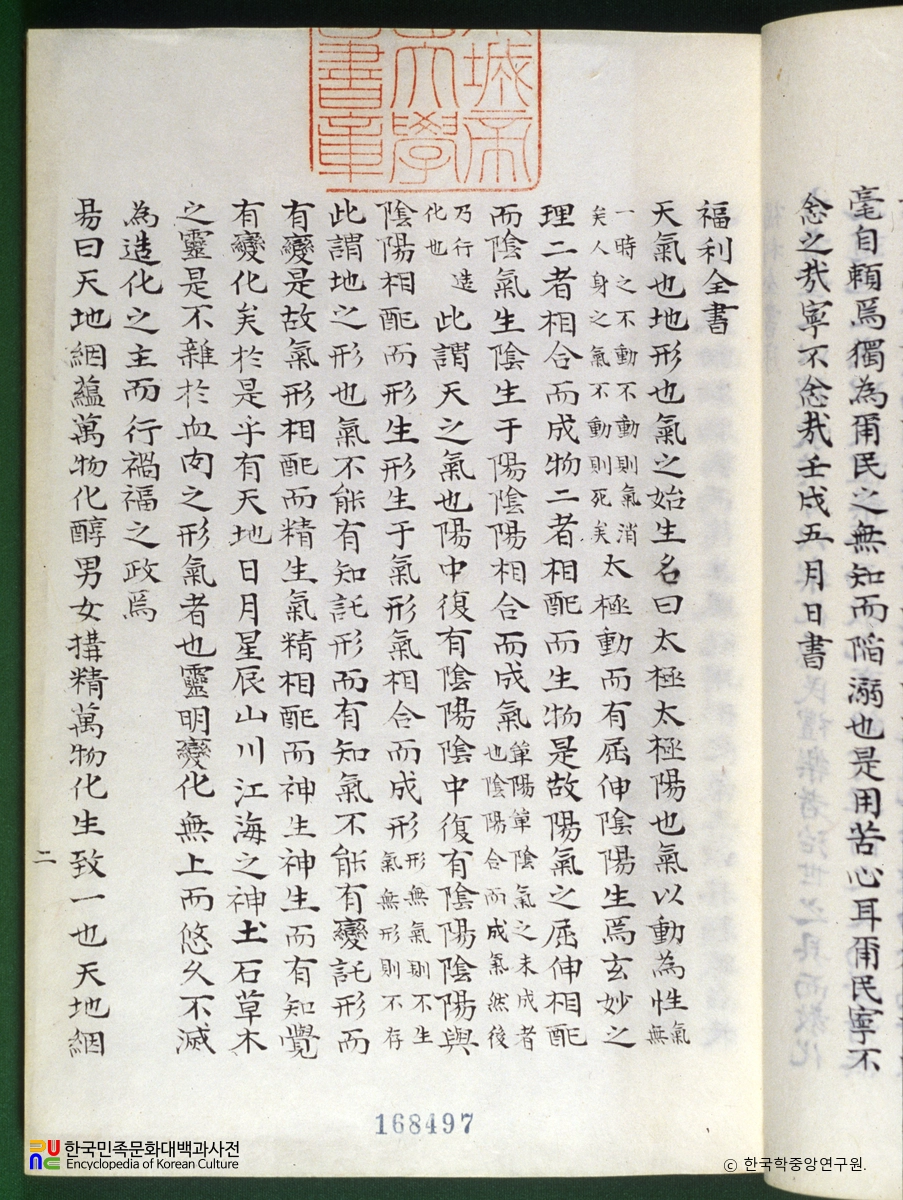 毫自賴焉獨為爾民之無知而陷溺也是用苦心耳爾民寧不
念之哉寧不念哉壬戌五月日書
福利全書
天氣也地形也氣之始生名曰太極太極陽也氣以動為性氣無
一時之不動不動則氣消矣人身之氣不動則死矣太極動而有屈伸陰陽生焉玄妙之
理二者相合而成物二者相配而生物是故陽氣之屈伸相配
而陰氣生陰生于陽陰陽相合而成氣單陽單陰氣之未成者也陰陽合而成氣然後
乃行造化也此謂天之氣也陽中復有陰陽陰中復有陰陽陰陽與
陰陽相配而形生形生于氣形氣相合而成形形無氣則不生氣無形則不存
此謂地之形也氣不能有知託形而有知氣不能有變託形而
有變是故氣形相配而精生氣精相配而神生神生而有知覺
有變化矣於是乎有天地日月星辰山川江海之神土石草木
之靈是不雜於血肉之形氣者也靈明變化無上而悠久不滅
為造化之主而行禍福之政焉
易曰天地絪蘊萬物化醇男女搆精萬物化生致一也天地絪
二
城帝
大學
書章
168497
한국민족문화대백과사전
Encyclopedia of Korean Culture
ⓒ 한국학중앙연구원.